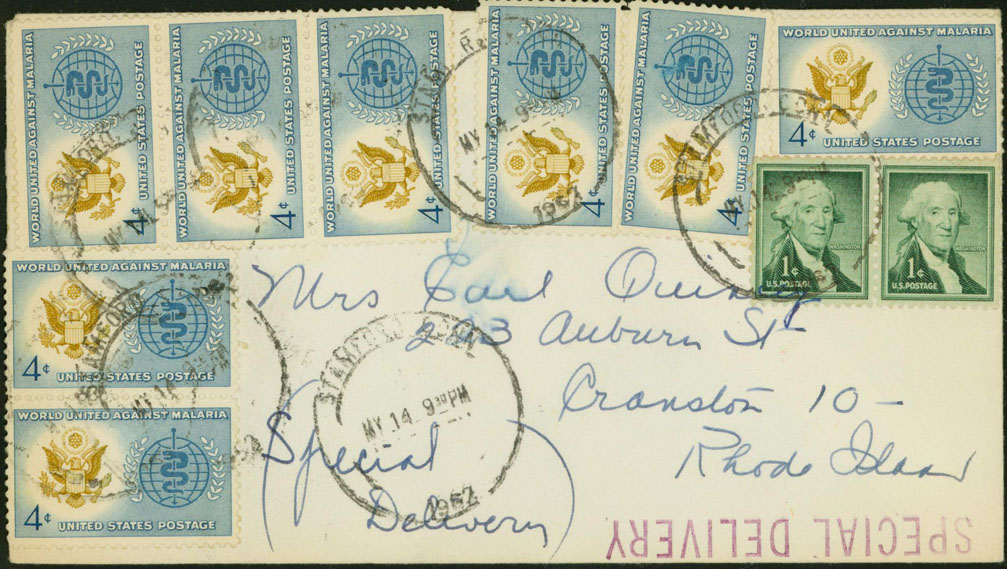 WORLD UNITED AGAINST MALARIA
4¢
UNITED STATES POSTAGE
WORLD UNITED AGAINST MALARIA
4¢
UNITED STATES POSTAGE
WORLD UNITED AGAINST MALARIA
4¢
UNITED STATES POSTAGE
WORLD UNITED AGAINST MALARIA
4¢
UNITED STATES POSTAGE
WORLD UNITED AGAINST MALARIA
4¢
UNITED STATES POSTAGE
WORLD UNITED AGAINST MALARIA
4¢
UNITED STATES POSTAGE
STAMFORD CONN.
MY 14 9
1962
WASHINGTON
1¢
U.S. POSTAGE
WASHINGTON
1¢
U.S. POSTAGE
WORLD UNITED AGAINST MALARIA
4¢
UNITED STATES POSTAGE
WORLD UNITED AGAINST MALARIA
4¢
UNITED STATES POSTAGE
STAMFORD
MY 14 9
Mrs Carl
Auburn St
Cranston 10 -
Rhode Island
(Special
Delivery)
STAMFORD CONN.
MY 14 9 30 PM
1962
SPECIAL DELIVERY